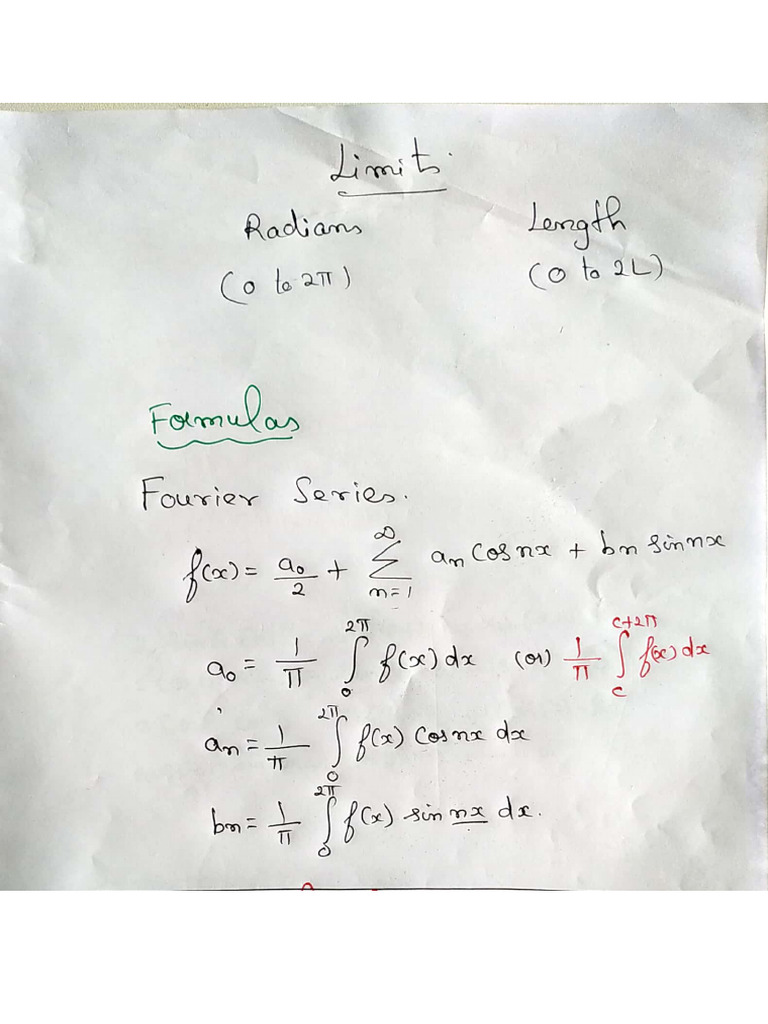 Limits.
Radians Length
(0 to 2π) (0 to 2L)
Formulas
Fourier Series.
f(x) = a₀/2 + ∑_{n=1}^{∞} aₙ cos nx + bₙ sin nx
a₀ = 1/π ∫₀^{2π} f(x) dx (or) 1/π ∫_c^{c+2π} f(x) dx
aₙ = 1/π ∫₀^{2π} f(x) cos nx dx
bₙ = 1/π ∫₀^{2π} f(x) sin nx dx.